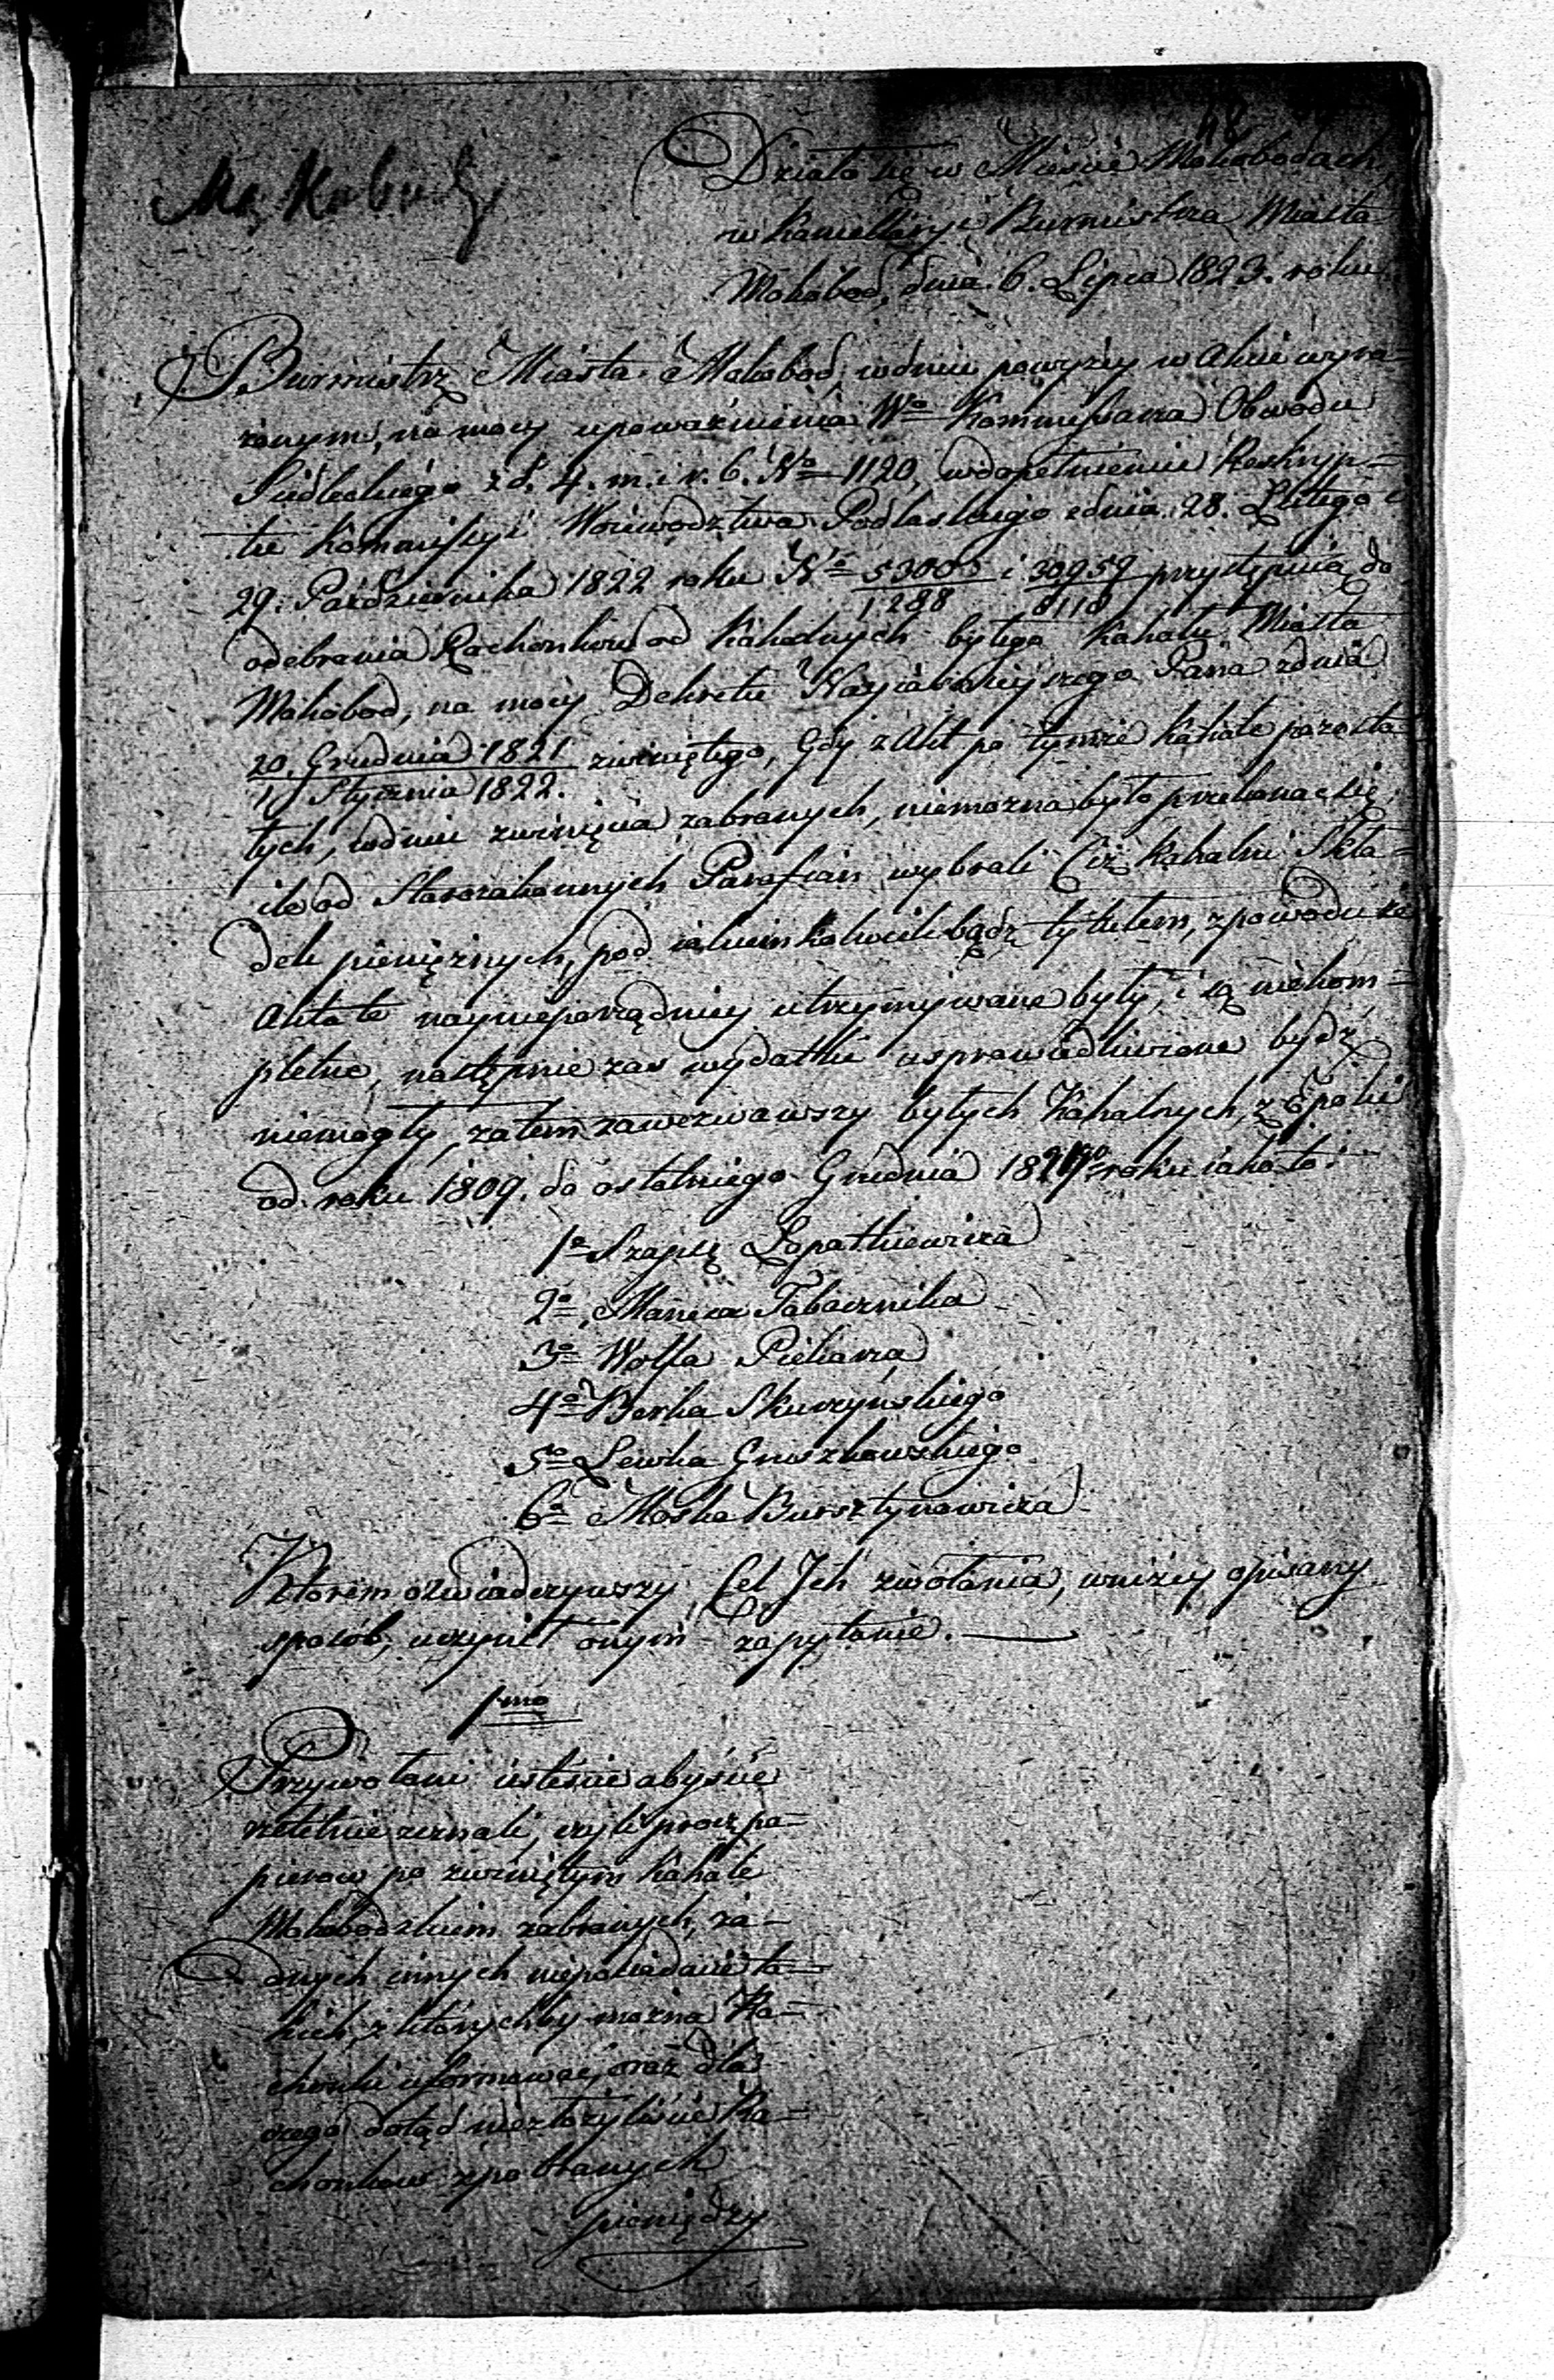 48
Mokobody
Działo się w Mieście Mokobodach
w Kancellaryi Burmistrza Miasta
Mokobod, dnia 6. Lipca 1823. roku
Burmistrz Miasta Mokobod w dniu powyżey w Akcie wyra-
żonym, na mocy upoważnienia Wo Kommissarza Obwodu
Siedleckiego z d. 4. m. i r. b. No 1120, w dopełnieniu Reskryp-
tu Kommissyi Woiewodztwa Podlaskiego z dnia 28. Lutego i
29. Października 1822 roku No 53005/1288 i 30959/8110 przystępuią do
odebrania Rachonków od Kahalnych byłego Kahału Miasta
Mokobod, na mocy Dekretu Nayiaśnieyszego Pana z dnia
20. Grudnia 1821
1 Stycznia 1822. zwiniętego, Gdy z Akt po tymże Kahale pozosta-
łych, w dniu zwinięcia zabranych, niemożna było przekonać się,
ile od Starozakonnych Parafian wybrali Ciż Kahalni Skła-
dek pieniężnych, pod iakiemkolwiekbądź tytułem, z powodu że
Akta te naynieporządniey utrzymywane były, i są niekom-
pletne, następnie zas wydatki usprawiedliwione bydź
niemogły, zatem zawezwawszy byłych Kahalnych, z Epoki
od roku 1809. do ostatniego Grudnia 1821go roku iako to:
1o Szapsę Łopatkiewicza
2o Manesa Tabacznika
3o Wolfa Piekarza
4o Berka Skurzyńskiego
5o Lewka Gruszkowskiego
6o Moska Bursztynowicza
Którem oświadczywszy Cel Ich zwołania, w niżey opisany
sposób, uczynił onym zapytanie.
1mo
Przywołani iesteście abyście
rzetelnie zeznali, czyli procz pa-
pierow po zwiniętym Kahale
Mokobodzkim zabranych, ża-
dnych innych nieposiadacie ta-
kich, z którychby można Ra-
chonki uformować, oraz dla
czego dotąd niezłożyliście Ra-
chonkow z pobranych
pieniędzy